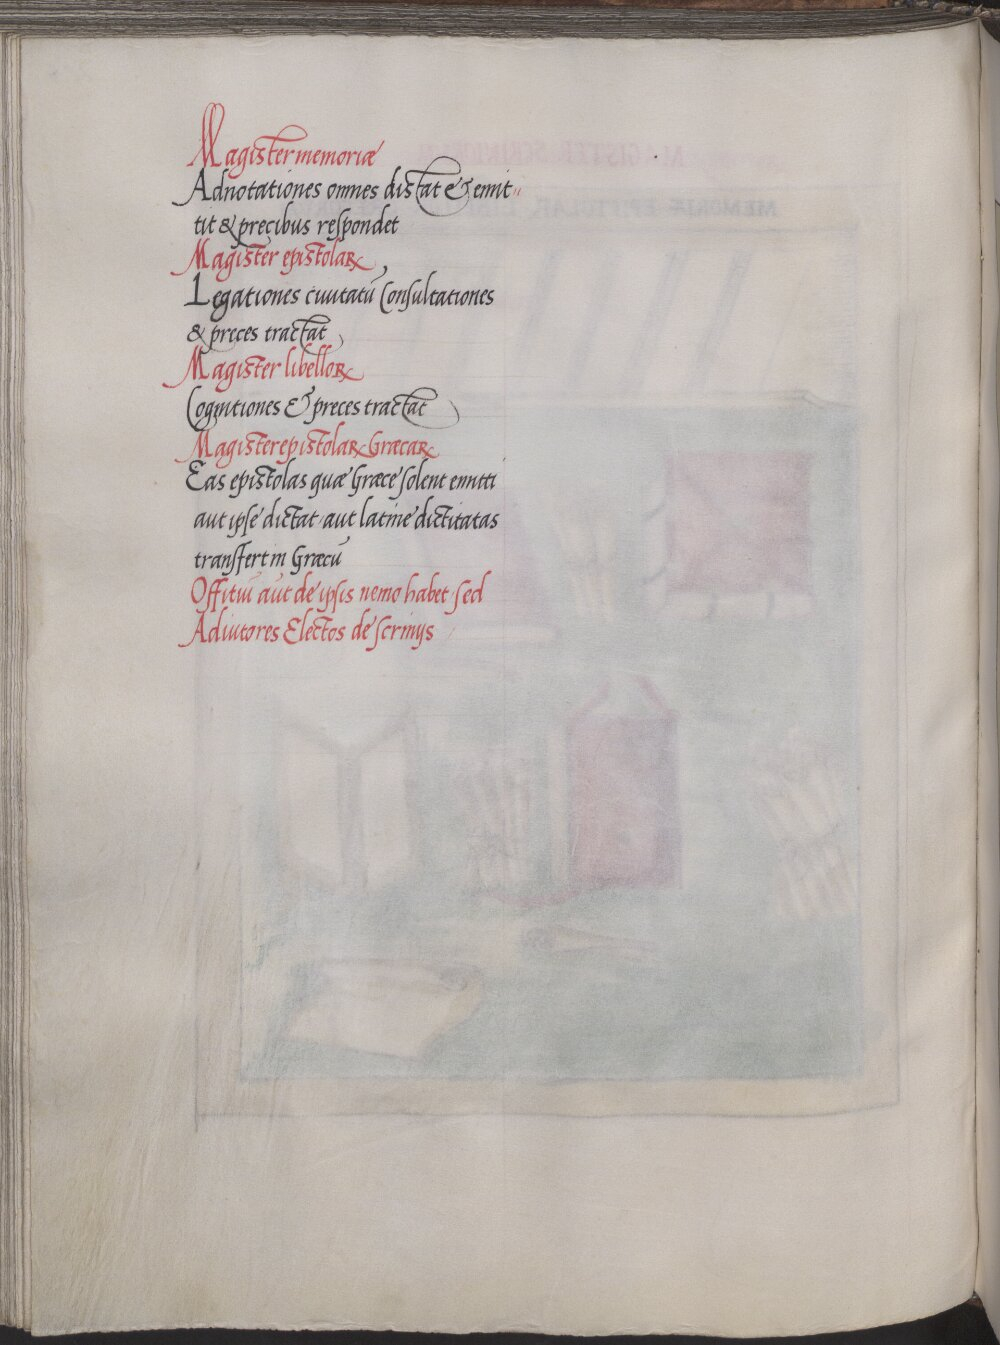 Magister memoriæ
Adnotationes omnes dictat & emit-
tit & precibus respondet
Magister epistolaꝝ
Legationes ciuitatū Consultationes
& preces tractat
Magister libelloꝝ
Cognitiones & preces tractat
Magister epistolaꝝ Græcaꝝ
Eas epistolas quæ Græce solent emitti
aut ipse dictat aut latine dictitatas
transfert in Græcū
Offitiū aūt de ipsis nemo habet sed
Adiutores Electos de scrinijs